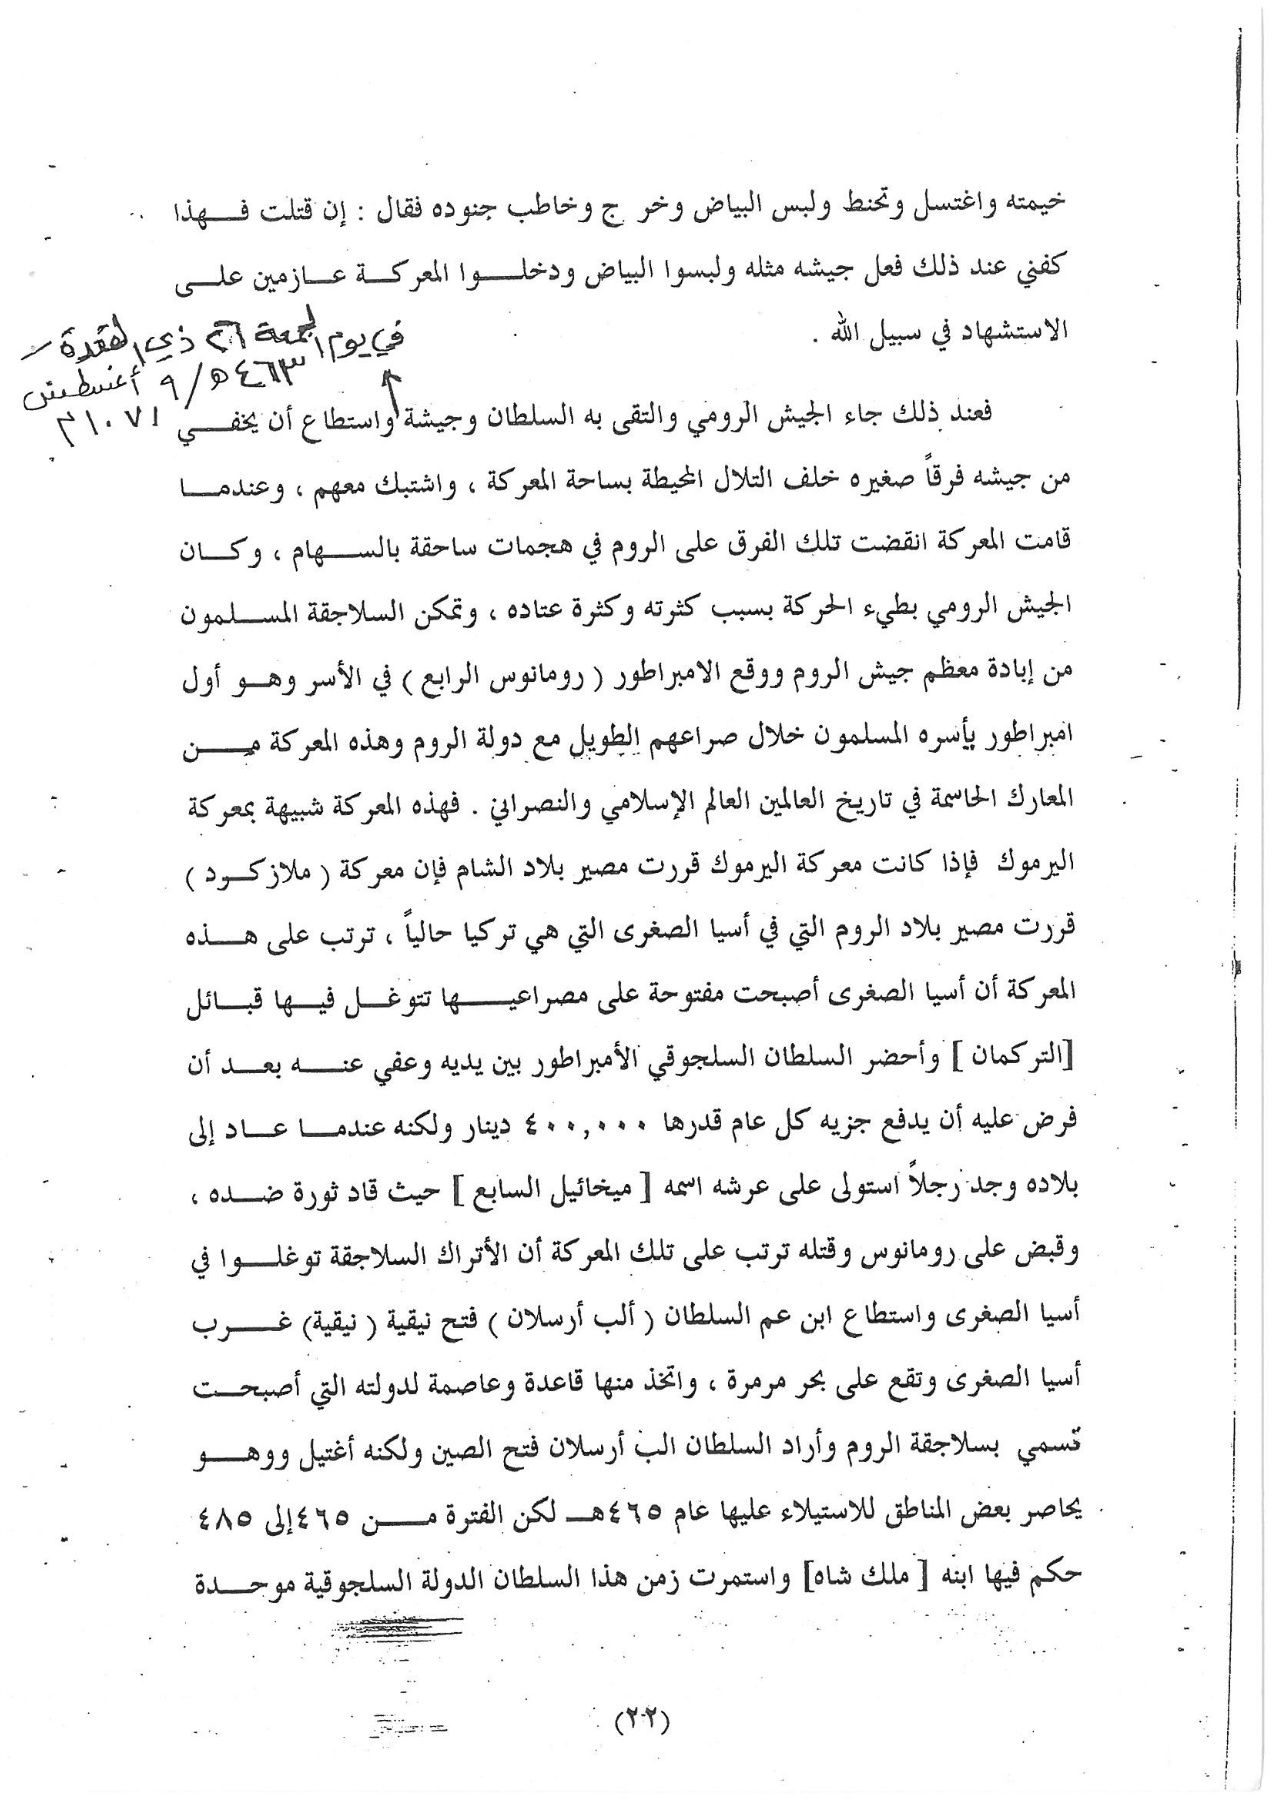 خيمته واغتسل وتحنط ولبس البياض وخر ج وخاطب جنوده فقال : إن قتلت فـــهذا
كفني عند ذلك فعل جيشه مثله ولبسوا البياض ودخلـــوا المعركـة عـازمين علـــى
الاستشهاد في سبيل الله .
في يوم الجمعة ٢٦ ذي القعدة
٤٦٣هـ / ٩ أغسطس
١٠٧١م
فعند ذلك جاء الجيش الرومي والتقى به السلطان وجيشة واستطاع أن يخفـــي
من جيشه فرقاً صغيره خلف التلال المحيطة بساحة المعركة ، واشتبك معهم ، وعندمـــا
قامت المعركة انقضت تلك الفرق على الروم في هجمات ساحقة بالســـهام ، وكـــان
الجيش الرومي بطيء الحركة بسبب كثرته وكثرة عتاده ، وتمكن السلاجقة المســـلمون
من إبادة معظم جيش الروم ووقع الامبراطور ( رومانوس الرابع ) في الأسر وهـــو أول
امبراطور يأسره المسلمون خلال صراعهم الطويل مع دولة الروم وهذه المعركة مـــن
المعارك الحاسمة في تاريخ العالمين العالم الإسلامي والنصراني . فهذه المعركة شبيهة بمعركة
اليرموك فإذا كانت معركة اليرموك قررت مصير بلاد الشام فإن معركة ( ملازكـرد )
قررت مصير بلاد الروم التي في أسيا الصغرى التي هي تركيا حالياً ، ترتب على هـــذه
المعركة أن أسيا الصغرى أصبحت مفتوحة على مصراعيـــها تتوغـــل فيـها قبـائل
[التركمان ] وأحضر السلطان السلجوقي الأمبراطور بين يديه وعفي عنـــه بعـــد أن
فرض عليه أن يدفع جزيه كل عام قدرها ٤٠٠,٠٠٠ دينار ولكنه عندمـــا عـاد إلى
بلاده وجد رجلاً استولى على عرشه اسمه [ ميخائيل السابع ] حيث قاد ثورة ضـــده ،
وقبض على رومانوس وقتله ترتب على تلك المعركة أن الأتراك السلاجقة توغلـــوا في
أسيا الصغرى واستطاع ابن عم السلطان ( ألب أرسلان ) فتح نيقية ( نيقية) غـــرب
أسيا الصغرى وتقع على بحر مرمرة ، واتخذ منها قاعدة وعاصمة لدولته التي أصبحـت
تسمي بسلاجقة الروم وأراد السلطان الب أرسلان فتح الصين ولكنه أغتيل ووهـــو
يحاصر بعض المناطق للاستيلاء عليها عام ٤٦٥هـ لكن الفترة مـــن ٤٦٥إلى ٤٨٥
حكم فيها ابنه [ ملك شاه] واستمرت زمن هذا السلطان الدولة السلجوقية موحـــدة
(٢٠٢)